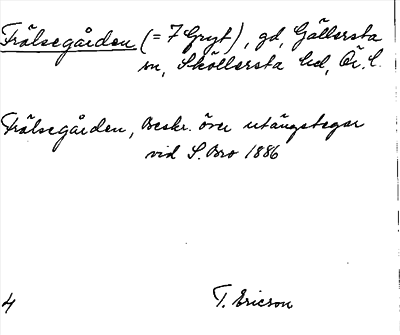 Frälsegården (= 7 Gryt), gd, Gällersta
sn, Sköllersta hd, Ör. l.
Frälsegården, Beskr. över utängstegar
vid S. Bro 1886
4 T. Ericson